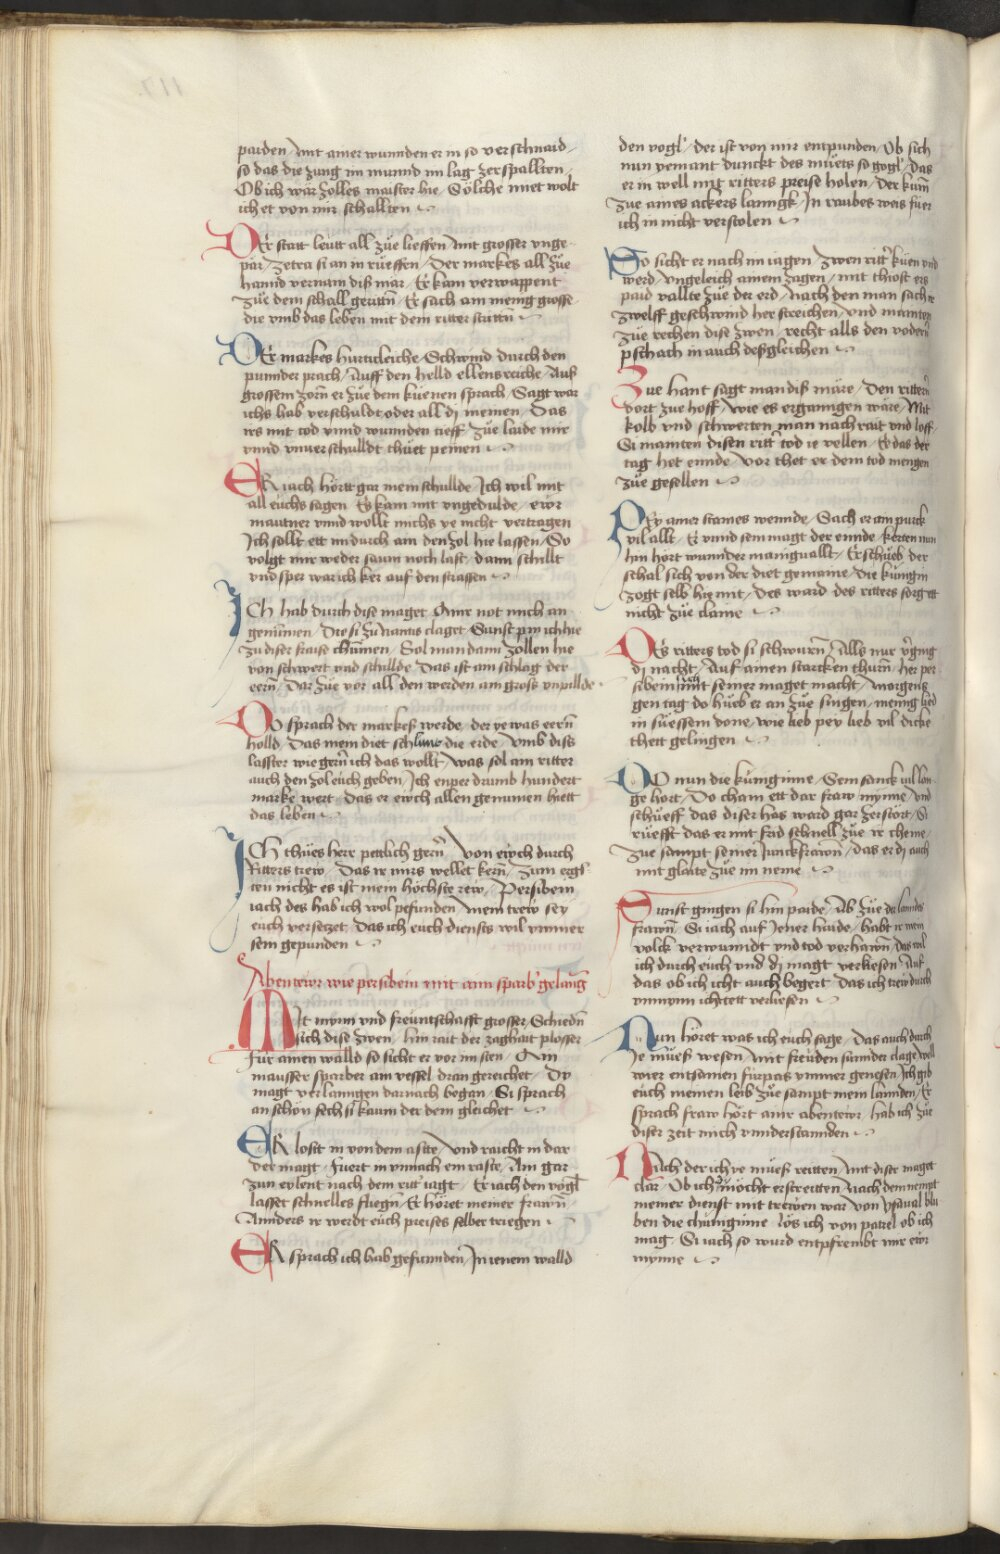 paiden / mit ainer wunnden er in so verschnaid /
so das die zung im munnd im lag zerspallten /
Ob ich wär zolles maister hie / Sölliche miet wolt
ich et von mir schallten
DEr statt leutt all zůe lieffen / mit grosser vnge
pär / Zetra si an in rüeffen / Der markes all zůe
hannd vernam diß mär / Er kam verwappent
zůe dem schall geritn̄ / Er sach ain menig grosse
die vmb das leben mit dem ritter strittn̄
DEr markes hurticleiche / Schwind durch den
punnder prach / Auff den helld ellensreiche / Aus
grossem zorn̄ er zůe dem küenen sprach / Sagt war
ichs hab verschuldt oder all dj meinen / Das
irs mit tod vnnd wunnden tieff / zůe laide mir
vnnd vnuerschulldt thůet peinen
ER iach hörtt gar mein schullde / Ich wil mit
all euchs sagen / Es kam mit vngedulde / ewr
mautner vnnd wollt michs ye nicht vertragen
Ich sollt ett in durch ain den zol hie lassen / So
volgt mir weder saum noch last / dann schillt
vnd sper war ich ker auf den strassen
ICh hab durch dise maget / Ainr not mich an
genumen / Die si zu Nantis claget / Sunst pin ich hie
zu diser straise chumen / Sol man dann zollen hie
von schwert vnd schillde / Das ist ain schlag der
eern̄ / Dar zůe vor all den werden ain groß vnpillde
DO sprach der markeß werde / der ye was eern̄
holld / Das mein diet schlunt die erde / Vmb diss
lasster wie gern̄ ich das wollt / Was sol ain ritter
auch den zol euch geben / Ich enper drumb hundert
marke wert / das er ewch allen genumen hiett
das leben
ICh thůes herr petlich gern̄ / Von ewch durch
Ritters trew / Das ir mirs wellet kern̄ / Zum ergs
ten nicht es ist mein höchste rew / Persibein
iach des hab ich wol pefunden / mein trew sey
euch versetzet / Das ich euch diensts wil ymmer
sein gepunden
Abentewr wie persibein mit ainn sparb' gelang
MIt mynn vnd freuntschafft grosser / Schiedn̄
sich dise zwen / hin rait der zaghait plosser
Für ainen walld so sicht er vor im sten / Ain
mausser sparber am vessel dran gereichet / Dy
magt verlanngen darnach began / Si sprach
an schon sech si kaum der dem gleichet
ER lost in von dem asste / Vnd raicht in dar
der magt / Fuert in ynnach ein raste / Ain gar
zun eylent nach dem ritt' iagt / Er iach den vogl
lasset schnelles fliegn̄ / Er höret meiner frawn̄
Annders ir werdt euch preises selber triegen
ER sprach ich hab gefunnden / In ienem walld
den vogl / der ist von mir enpunden / Ob sich
nun yemant dunckt des müets so gogl / Das
er in well mit ritters preise holen / Der kum̄
zue aines ackers lanngk / In raubes weis füer
ich in nicht verstolen
SO sicht er nach im iagen / Zwen ritt' küen vnd
werd / vngeleich ainem zagen / mit thiost ers
paid vallte zůe der erd / Nach den man sach ir
zwelff geschwind her streichen / vnd mainten
zůe rechen dise zwen / recht alls den vodern̄
pschach in auch desgleichen
Zue hant sagt man diß märe / Den rittern̄
dort zue hoff / wie es erganngen wäre / Mit
kolb vnd schwerten man nach rait vnd loff
Si mainten disen ritt' tod ie vellen / Er das der
tag het ennde / vor thet er dem tod mengen
zůe gesellen
PEy ainer staines wennde / Sach er ain purck
vil allt / Er vnnd sein magt der ennde / kerten nun
hin hört wunnder maniguallt / Er schueb der
schal sich von der diet gemaine / Die künigin
zogt selb hin mit / Des ward des ritters sorg ett
nicht zůe claine
DEs ritters tod si schwurn̄ / Alls nur v'gieng
dj nacht / Auf ainen starcken thurn̄ / her per
sibein mit seiner maget macht / Morgens
gen tag do hueb er an zůe singen / menig lied
in süessem done / wie lieb pey lieb vil dicke
thett gelingen
DO nun die künginne / Sein sanck vil lan
ge hort / Do cham ett dar fraw mynne / Vnd
schüeff das diser has ward gar zerstört / Si
rüefft das er mit frid schnell zůe ir cheme
Zue sampt seiner Junckfrawn̄ / das er dj auch
mit glaite zůe im neme
Sunst gingen si hin paide / Ab zůe der lanndes
frawn̄ / Si iach auf Jener haide / habt ir mein
volck verwunndt vnd tod verhawn̄ / Das wil
ich durch euch vnd dj magt verkiesen / Auf
das ob ich icht auch beger̄t / Das ich trew durch
vnmynn icht ett verliesen
Nun höret was ich euch sage / Das auch durch
Je müeß wesen / Mit freuden sunnder clage / Well
wier entsamen fürpas ymmer genesen / Ich gib
euch meinen leib zůe sampt mein lannden / Er
sprach fraw hört ainr abentewr / hab ich zůe
diser zeit mich vnnderstannden
Nach der ich ye müeß reitten / mit diser maget
clar / Ob ich möcht erstreitten / Nach dem nempt
meiner dienst mit trewen war / Von ysaual blu
ben die chünginne / lös ich von patrel ob ich
mag / Si iach so wurd entpfrembt mir ewr
mynne